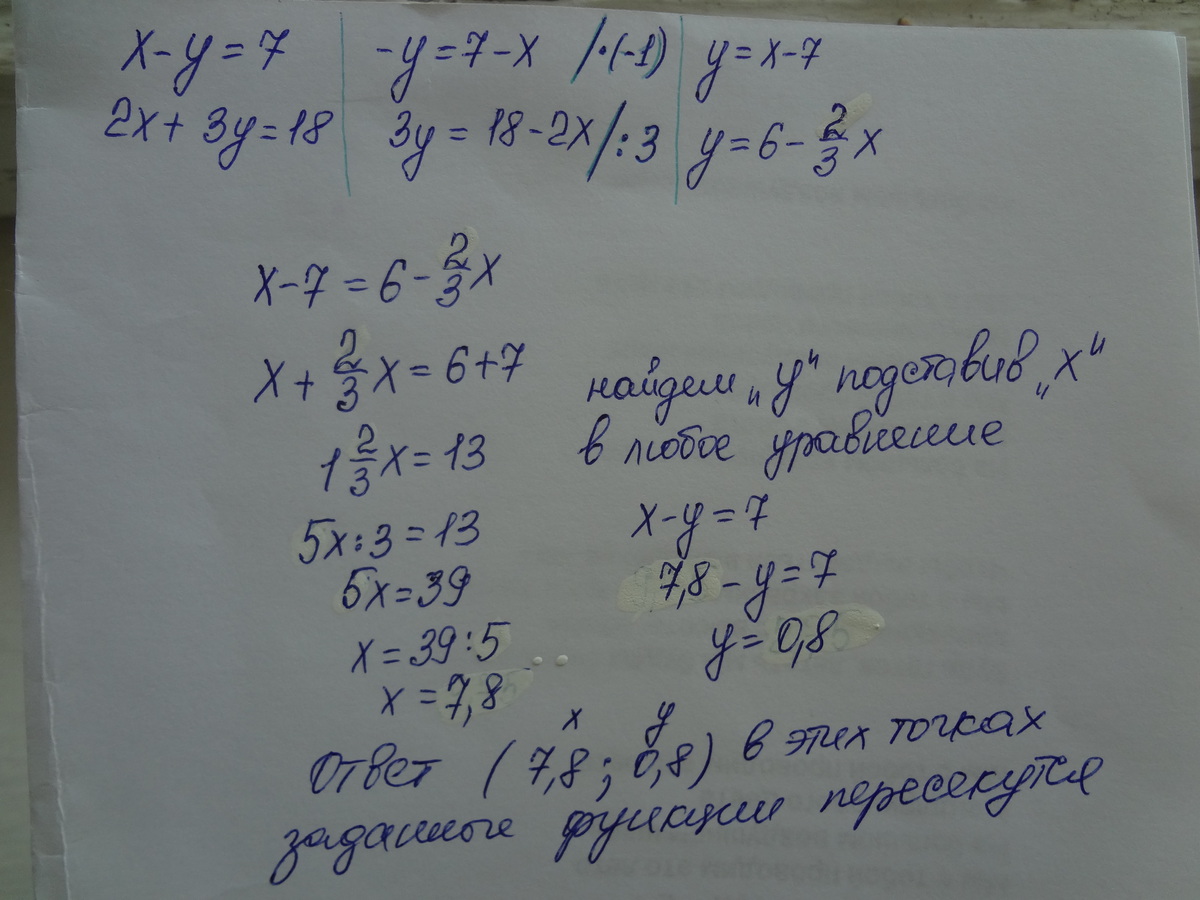 x-y=7 | -y=7-x /·(-1) | y=x-7
2x+3y=18 | 3y=18-2x/:3 | y=6-2/3x
x-7=6-2/3x
x+2/3x=6+7
1 2/3x=13
5x:3=13
5x=39
x=39:5
x=7,8
найдем „у“ подставив „х“
в любое уравнение
x-y=7
7,8-y=7
y=0,8
x y
Ответ (7,8; 0,8) в этих точках
заданные функции пересекутся